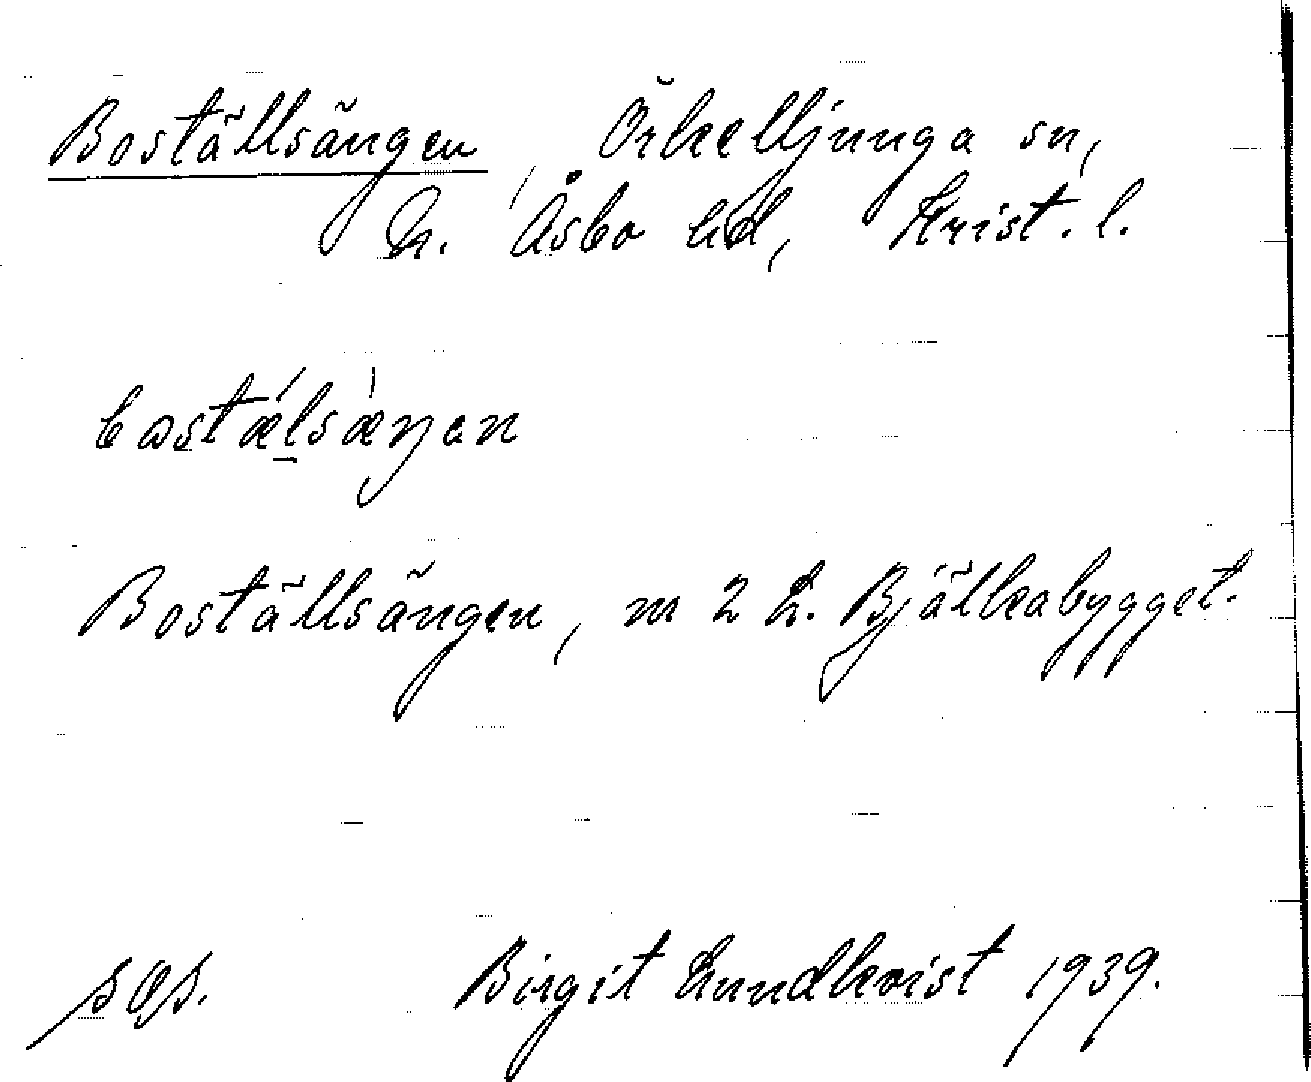 Boställsängen, Örkelljunga sn,
N. Åsbo hd, Krist. l.
bostælsæŋen
Boställsängen, m 2 k. Bjälkabygget.
Birgit Lundkvist 1939.